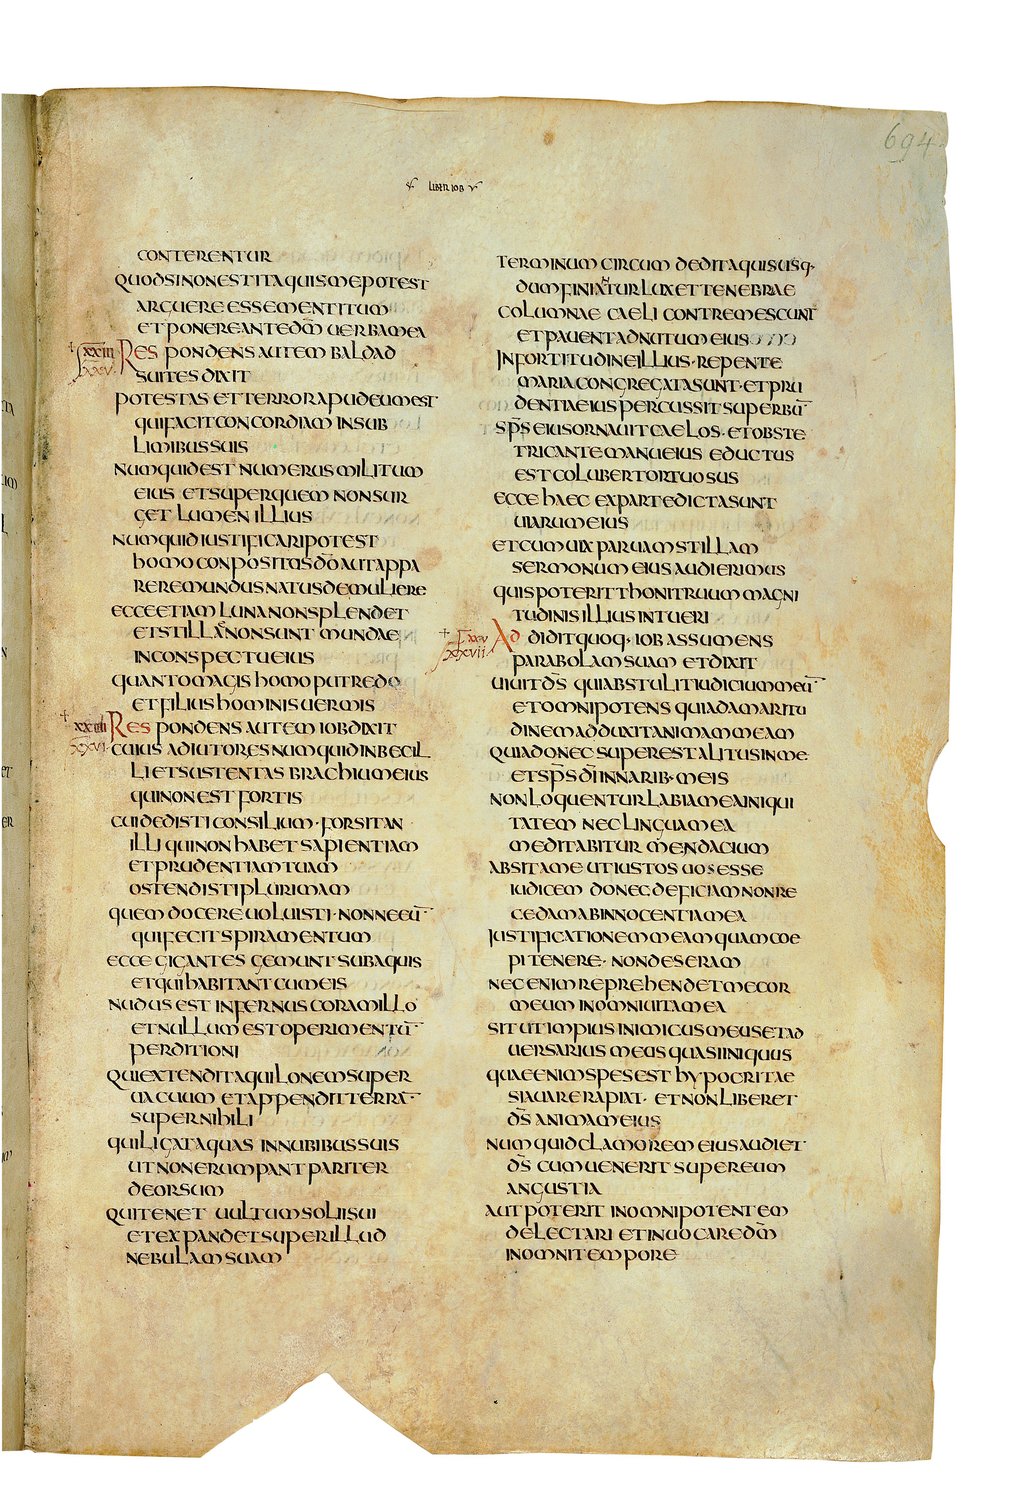 694
LIBER IOB
CONTERENTUR
QUODSINONESTITAQUISMEPOTEST
ARGUERE ESSEMENTITUM
ETPONEREANTEDM̄ UERBAMEA
XXIII RES PONDENS AUTEM BALDAD
XXV SUITES DIXIT
POTESTAS ETTERRORAPUDEUMEST
QUIFACITCONCORDIAM INSUB
LIMIBUSSUIS
NUMQUIDEST NUMERUSMILITUM
EIUS ETSUPERQUEM NONSUR
GET LUMENILLIUS
NUMQUIDIUSTIFICARIPOTEST
HOMOCONPOSITUSDŌAUTAPPA
REREMUNDUSNATUSDEMULIERE
ECCEETIAM LUNANONSPLENDET
ETSTILLAENONSUNT MUNDAE
INCONSPECTUEIUS
QUANTOMAGIS HOMOPUTREDO
ETFILIUSHOMINISUERMIS
XXIIII RES PONDENS AUTEM IOBDIXIT
XXVI CUIUS ADIUTORESNUMQUIDINBECIL
LIETSUSTENTAS BRACHIUMEIUS
QUINONEST FORTIS
CUIDEDISTICONSILIUM·FORSITAN
ILLI QUINON HABET SAPIENTIAM
ETPRUDENTIAMTUAM
OSTENDISTIPLURIMAM
QUEM DOCEREUOLUISTI·NONNEEŪ
QUIFECITSPIRAMENTUM
ECCE GIGANTES GEMUNT SUBAQUIS
ETQUIHABITANTCUMEIS
NUDUSEST INFERNUSCORAMILLO
ETNULLUM ESTOPERIMENTŪ
PERDITIONI
QUIEXTENDITAQUILONEMSUPER
UACUUM ETAPPENDITTERRĀ
SUPERNIHILI
QUILIGATAQUAS INNUBIBUSSUIS
UTNONERUMPANTPARITER
DEORSUM
QUITENET UULTUMSOLIISUI
ETEXPANDETSUPERILLUD
NEBULAMSUAM
TERMINUM CIRCUM DEDITAQUISUSQ·
DUMFINIANTURLUXETTENEBRAE
COLUMNAE CAELI CONTREMESCUNT
ETPAUENTADNUTUMEIUS
INFORTITUDINEILLIUS·REPENTE
MARIACONGREGATASUNT·ETPRU
DENTIAEIUSPERCUSSITSUPERBŪ
SPS̄EIUSORNAUITCAELOS·ETOBSTE
TRICANTEMANUEIUS EDUCTUS
ESTCOLUBERTORTUOSUS
ECCE HAEC EXPARTEDICTASUNT
UIARUMEIUS
ETCUMUIXPARUAMSTILLAM
SERMONUM EIUSAUDIERIMUS
QUISPOTERITTHONITRUUM MAGNI
TUDINISILLIUSINTUERI
XXV AD DIDITQUOQ· IOB ASSUMENS
XXVII PARABOLAMSUAM ETDIXIT
UIUITDS̄ QUIABSTULITIUDICIUMMEŪ
ETOMNIPOTENS QUIADAMARITU
DINEMADDUXITANIMAMMEAM
QUIADONECSUPERESTALITUSINME
ETSPS̄DĪINNARIB·MEIS
NONLOQUENTURLABIAMEAINIQUI
TATEM NECLINGUAMEA
MEDITABITUR MENDACIUM
ABSITAME UTIUSTOS UOSESSE
IUDICEM DONECDEFICIAMNONRE
CEDAMABINNOCENTIAMEA
IUSTIFICATIONEMMEAMQUAMCOE
PITENERE· NONDESERAM
NECENIMREPREHENDETMECOR
MEUM INOMNIUITAMEA
SITUTIMPIUSINIMICUSMEUSETAD
UERSARIUS MEUS QUASIINIQUUS
QUAEENIMSPESEST HYPOCRITAE
SIAUARERAPIAT· ETNONLIBERET
DS̄ ANIMAMEIUS
NUMQUIDCLAMOREM EIUSAUDIET
DS̄ CUMUENERIT SUPEREUM
ANGUSTIA
AUTPOTERIT INOMNIPOTENTEM
DELECTARI ETINUOCAREDM̄
INOMNITEMPORE